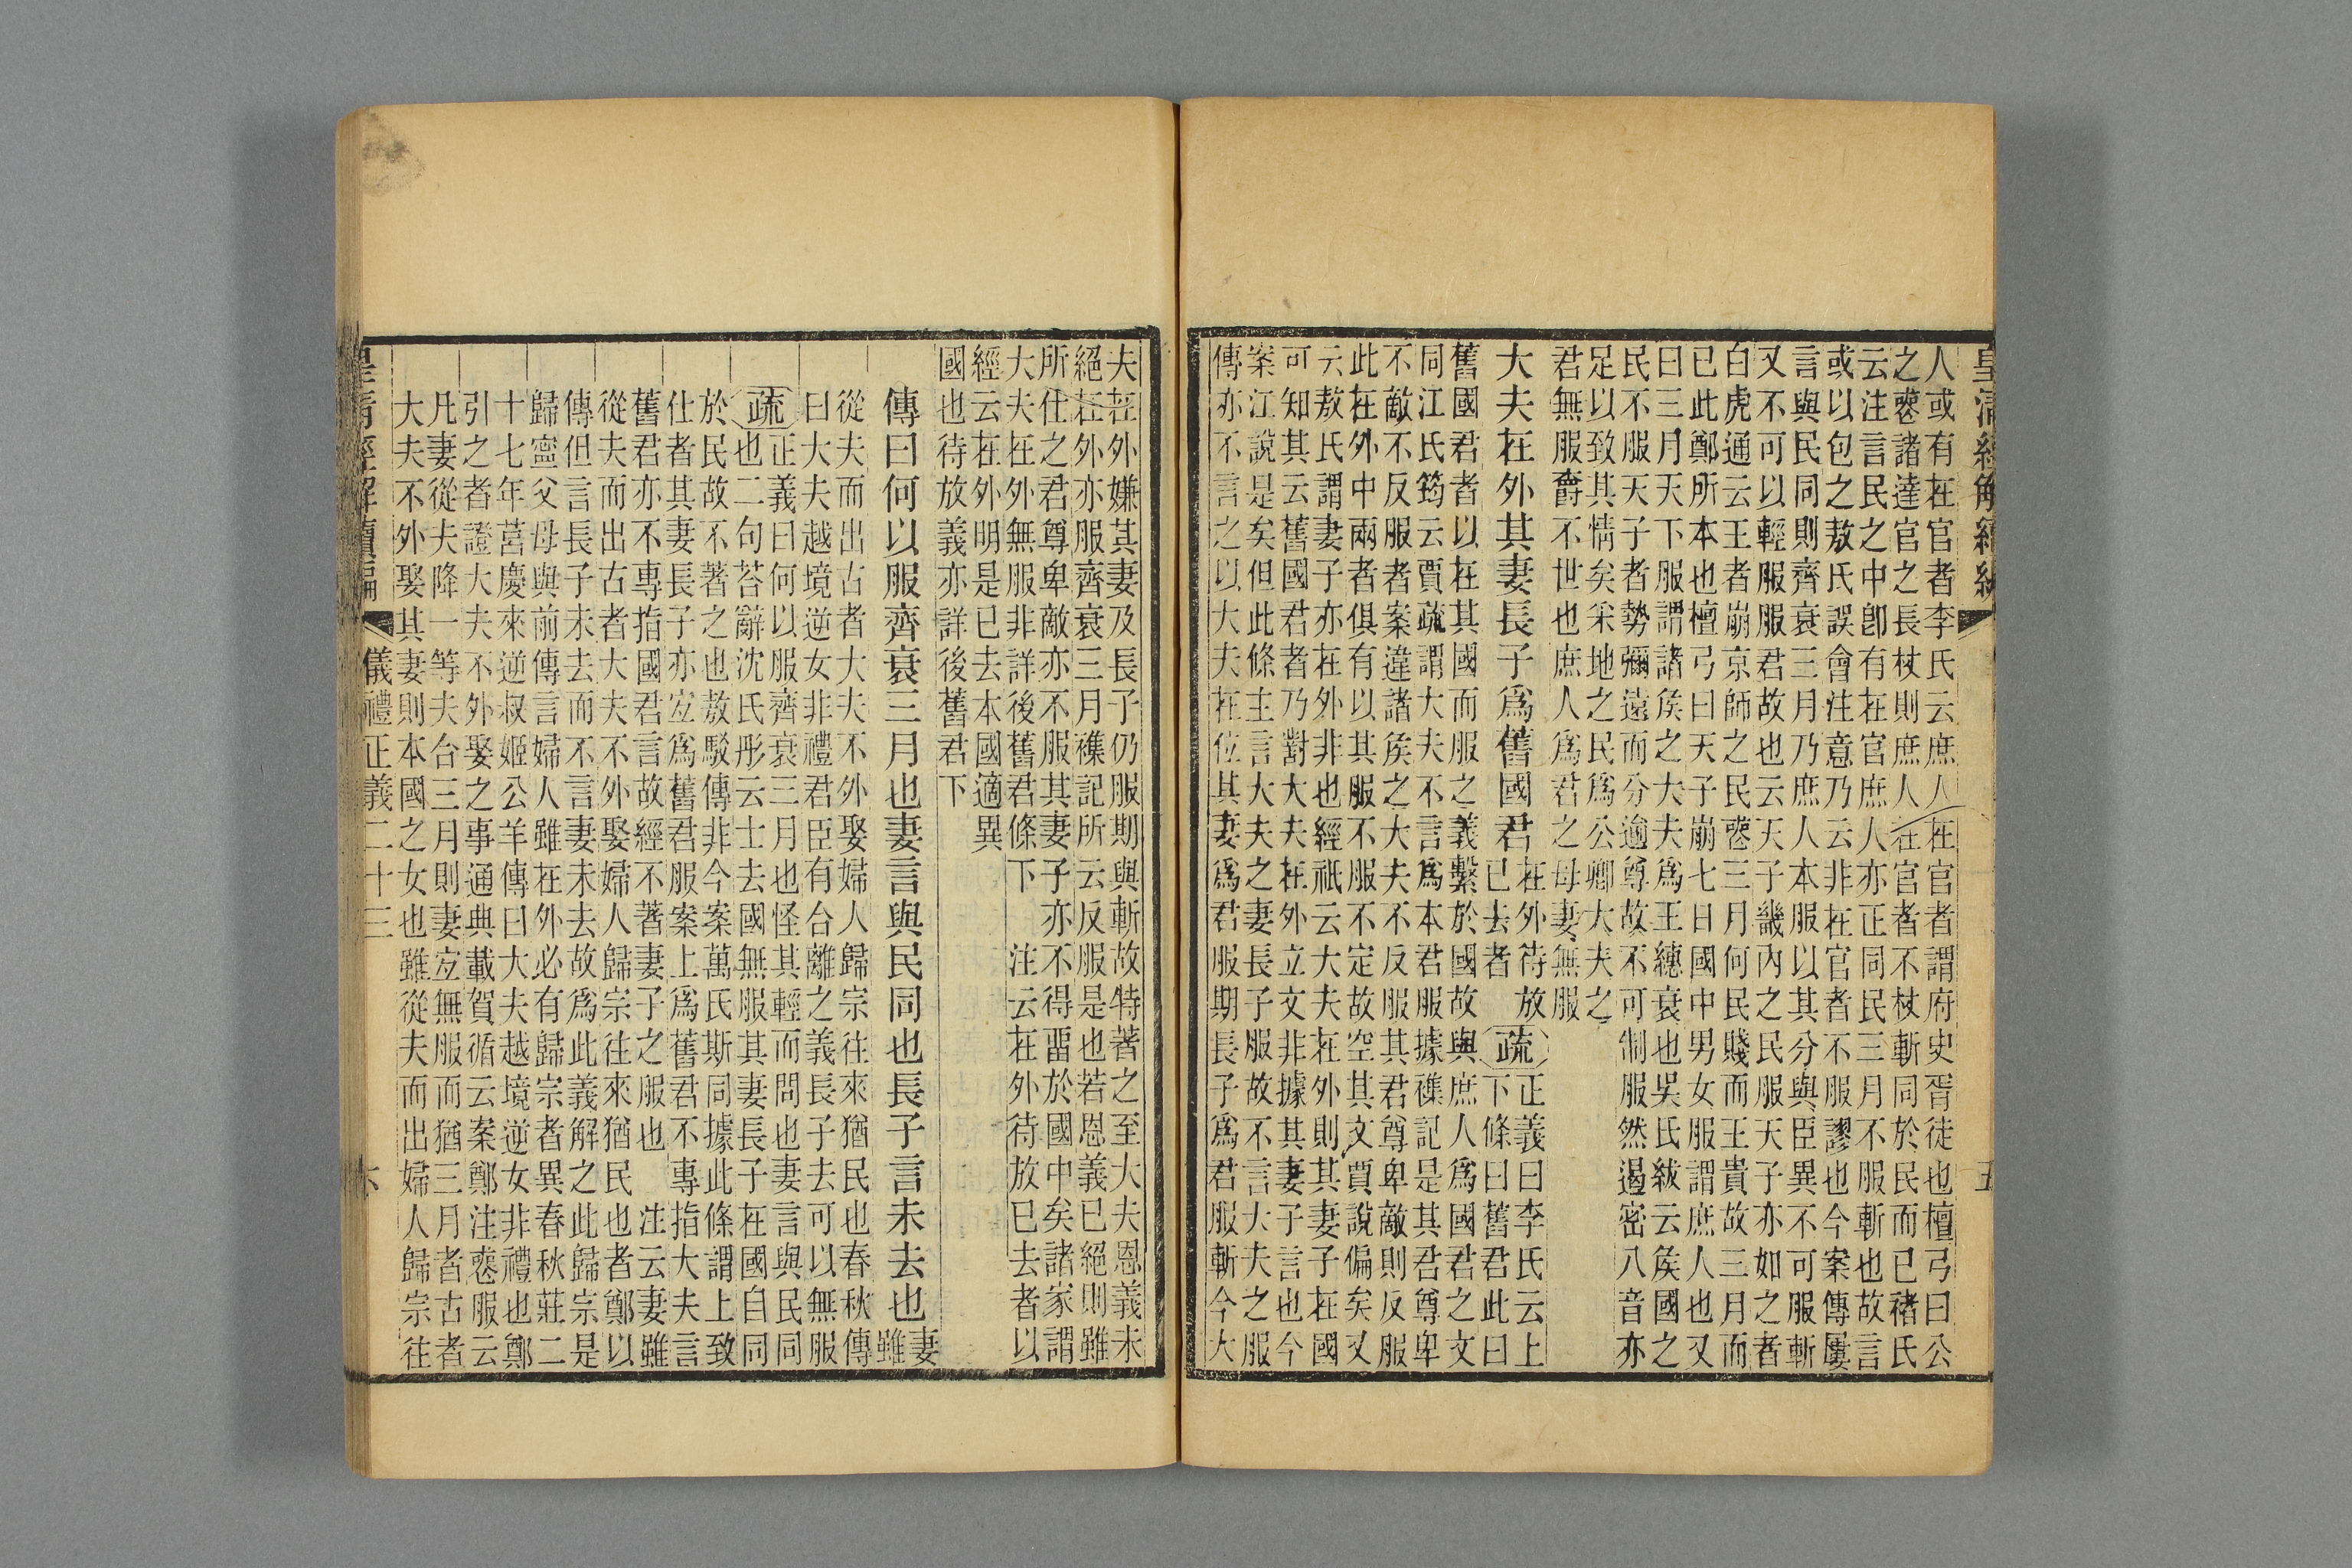 皇清經解續編
五
人或有在官者李氏云庶人在官者謂府史胥徒也檀弓曰公
之喪諸達官之長杖則庶人在官者不杖斬同於民而已褚氏
云注言民之中卽有在官庶人亦正同民三月不服斬也故言
或以包之敖氏誤會注意乃云非在官者不服謬也今案傳屢
言與民同則齊衰三月乃庶人本服以其分與臣異不可服斬
又不可以輕服服君故也云天子畿內之民服天子亦如之者
白虎通云王者崩京師之民喪三月何民賤而王貴故三月而
已此鄭所本也檀弓曰天子崩七日國中男女服謂庶人也又
曰三月天下服謂諸侯之大夫爲王繐衰也吳氏紱云侯國之
民不服天子者勢彌遠而分逾尊故不可制服然遏密八音亦
足以致其情矣采地之民爲公卿大夫之
君無服爵不世也庶人爲君之母妻無服
大夫在外其妻長子爲舊國君
在外待放
已去者
疏
正義曰李氏云上
下條曰舊君此曰
舊國君者以在其國而服之義繫於國故與庶人爲國君之文
同江氏筠云賈疏謂大夫不言爲本君服據禮記是其君尊卑
不敵不反服者案違諸侯之大夫不反服其君尊卑敵則反服
此在外中兩者俱有以其服不服不定故空其文賈說偏矣又
云敖氏謂妻子亦在外非也經祇云大夫在外則其妻子在國
可知其云舊國君者乃對大夫在外立文非據其妻子言也今
案江說是矣但此條主言大夫之妻長子服故不言大夫之服
傳亦不言之以大夫在位其妻爲君服期長子爲君服斬今大
夫在外嫌其妻及長子仍服期與斬故特著之至大夫恩義未
絕在外亦服齊衰三月襍記所云反服是也若恩義已絕則雖
所仕之君尊卑敵亦不服其妻子亦不得畱於國中矣諸家謂
大夫在外無服非詳後舊君條下 注云在外待放已去者以
經云在外明是已去本國適異
國也待放義亦詳後舊君下
傳曰何以服齊衰三月也妻言與民同也長子言未去也
妻
雖
從夫而出古者大夫不外娶婦人歸宗往來猶民也春秋傳
曰大夫越境逆女非禮君臣有合離之義長子去可以無服
疏
正義曰何以服齊衰三月也怪其輕而問也妻言與民同
也二句荅辭沈氏彤云士去國無服其妻長子在國自同
於民故不著之也敖駁傳非今案萬氏斯同據此條謂上致
仕者其妻長子亦宜爲舊君服案上爲舊君不專指大夫言
舊君亦不專指國君言故經不著妻子之服也 注云妻雖
從夫而出古者大夫不外娶婦人歸宗往來猶民也者鄭以
傳但言長子未去而不言妻未去故爲此義解之此歸宗是
歸寧父母與前傳言婦人雖在外必有歸宗者異春秋莊二
十七年莒慶來逆叔姬公羊傳曰大夫越境逆女非禮也鄭
引之者證大夫不外娶之事通典載賀循云案鄭注喪服云
凡妻從夫降一等夫合三月則妻宜無服而猶三月者古者
大夫不外娶其妻則本國之女也雖從夫而出婦人歸宗往
皇清經解續編
儀禮正義二十三
六